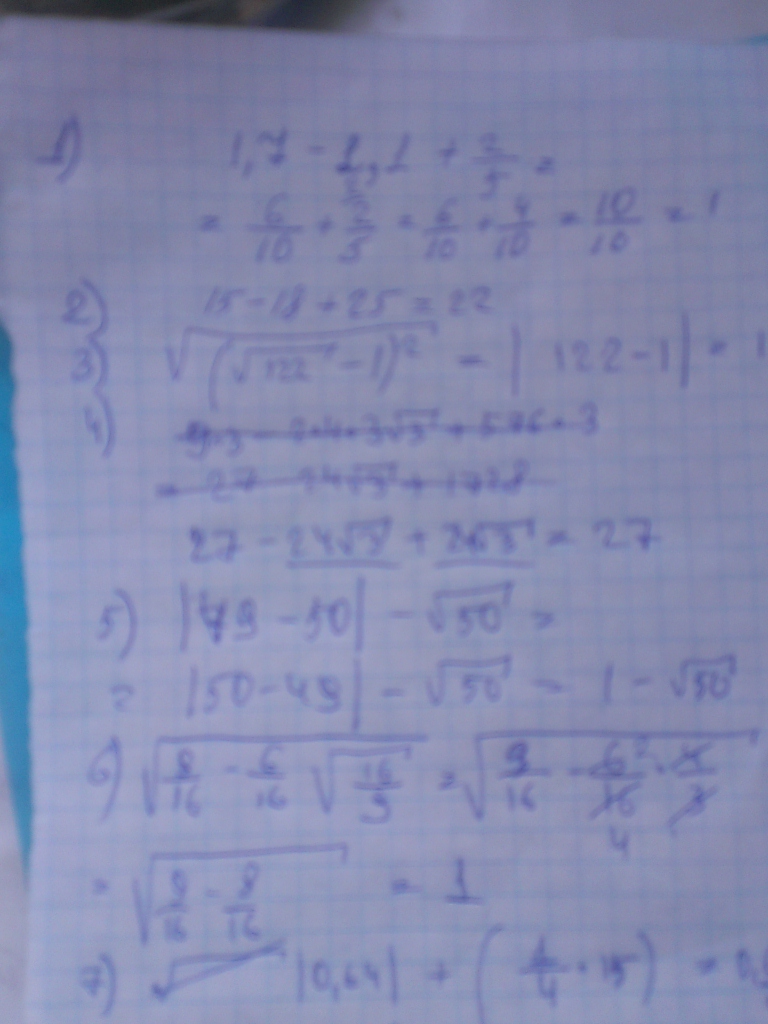 1) 1,7 - 1,1 + 2/5 =
= 6/10 + 2/5 = 6/10 + 4/10 = 10/10 = 1
2) 15 - 18 + 25 = 22
3) √(√122 - 1)² = | 122 - 1 | = 1
4)
27 - 24√3 + 24√3 = 27
5) |49 - 50| - √50 =
= |50 - 49| - √50 = 1 - √50
6) √(9/16 - 6/16 √(16/9)) = √(9/16 -
= √(
= 1
7) |0,64| + ( 1/4 · 15 ) = 0,